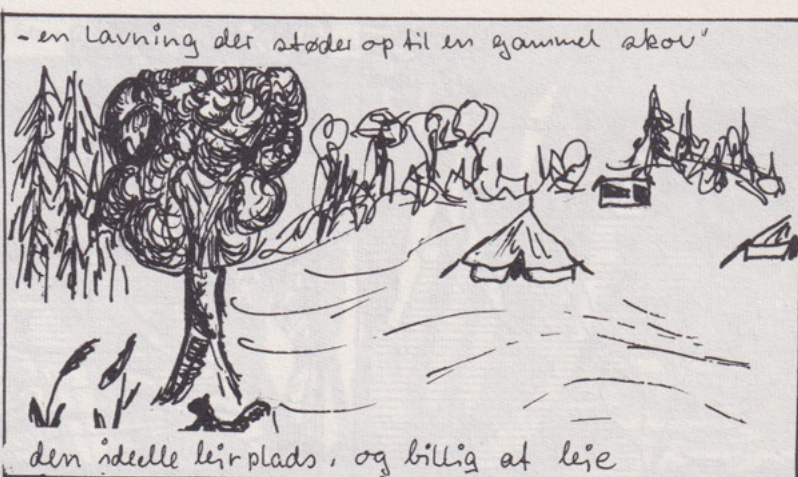 - en lavning der støder op til en gammel skov"
den ideelle lejrplads, og billig at leje